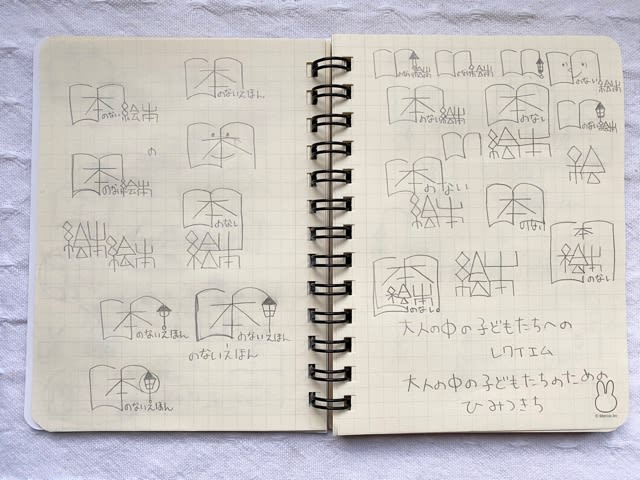 本 のないえほん
本 のない絵本
の
本
本 のない絵本
本 のない
絵本 絵本 絵本
本 のないえほん
本 のないえほん
のないえほん
本 のないえほん
のない絵本 のない絵本 のない絵本 のない絵本
本 のない絵本
本 のない
のない絵本
絵本
絵
本 のない
絵本
本 のない
本 絵本 のない
本 絵本 のない
絵本
大人の中の子どもたちへの
レクイエム
大人の中の子どもたちのための
ひみつきち